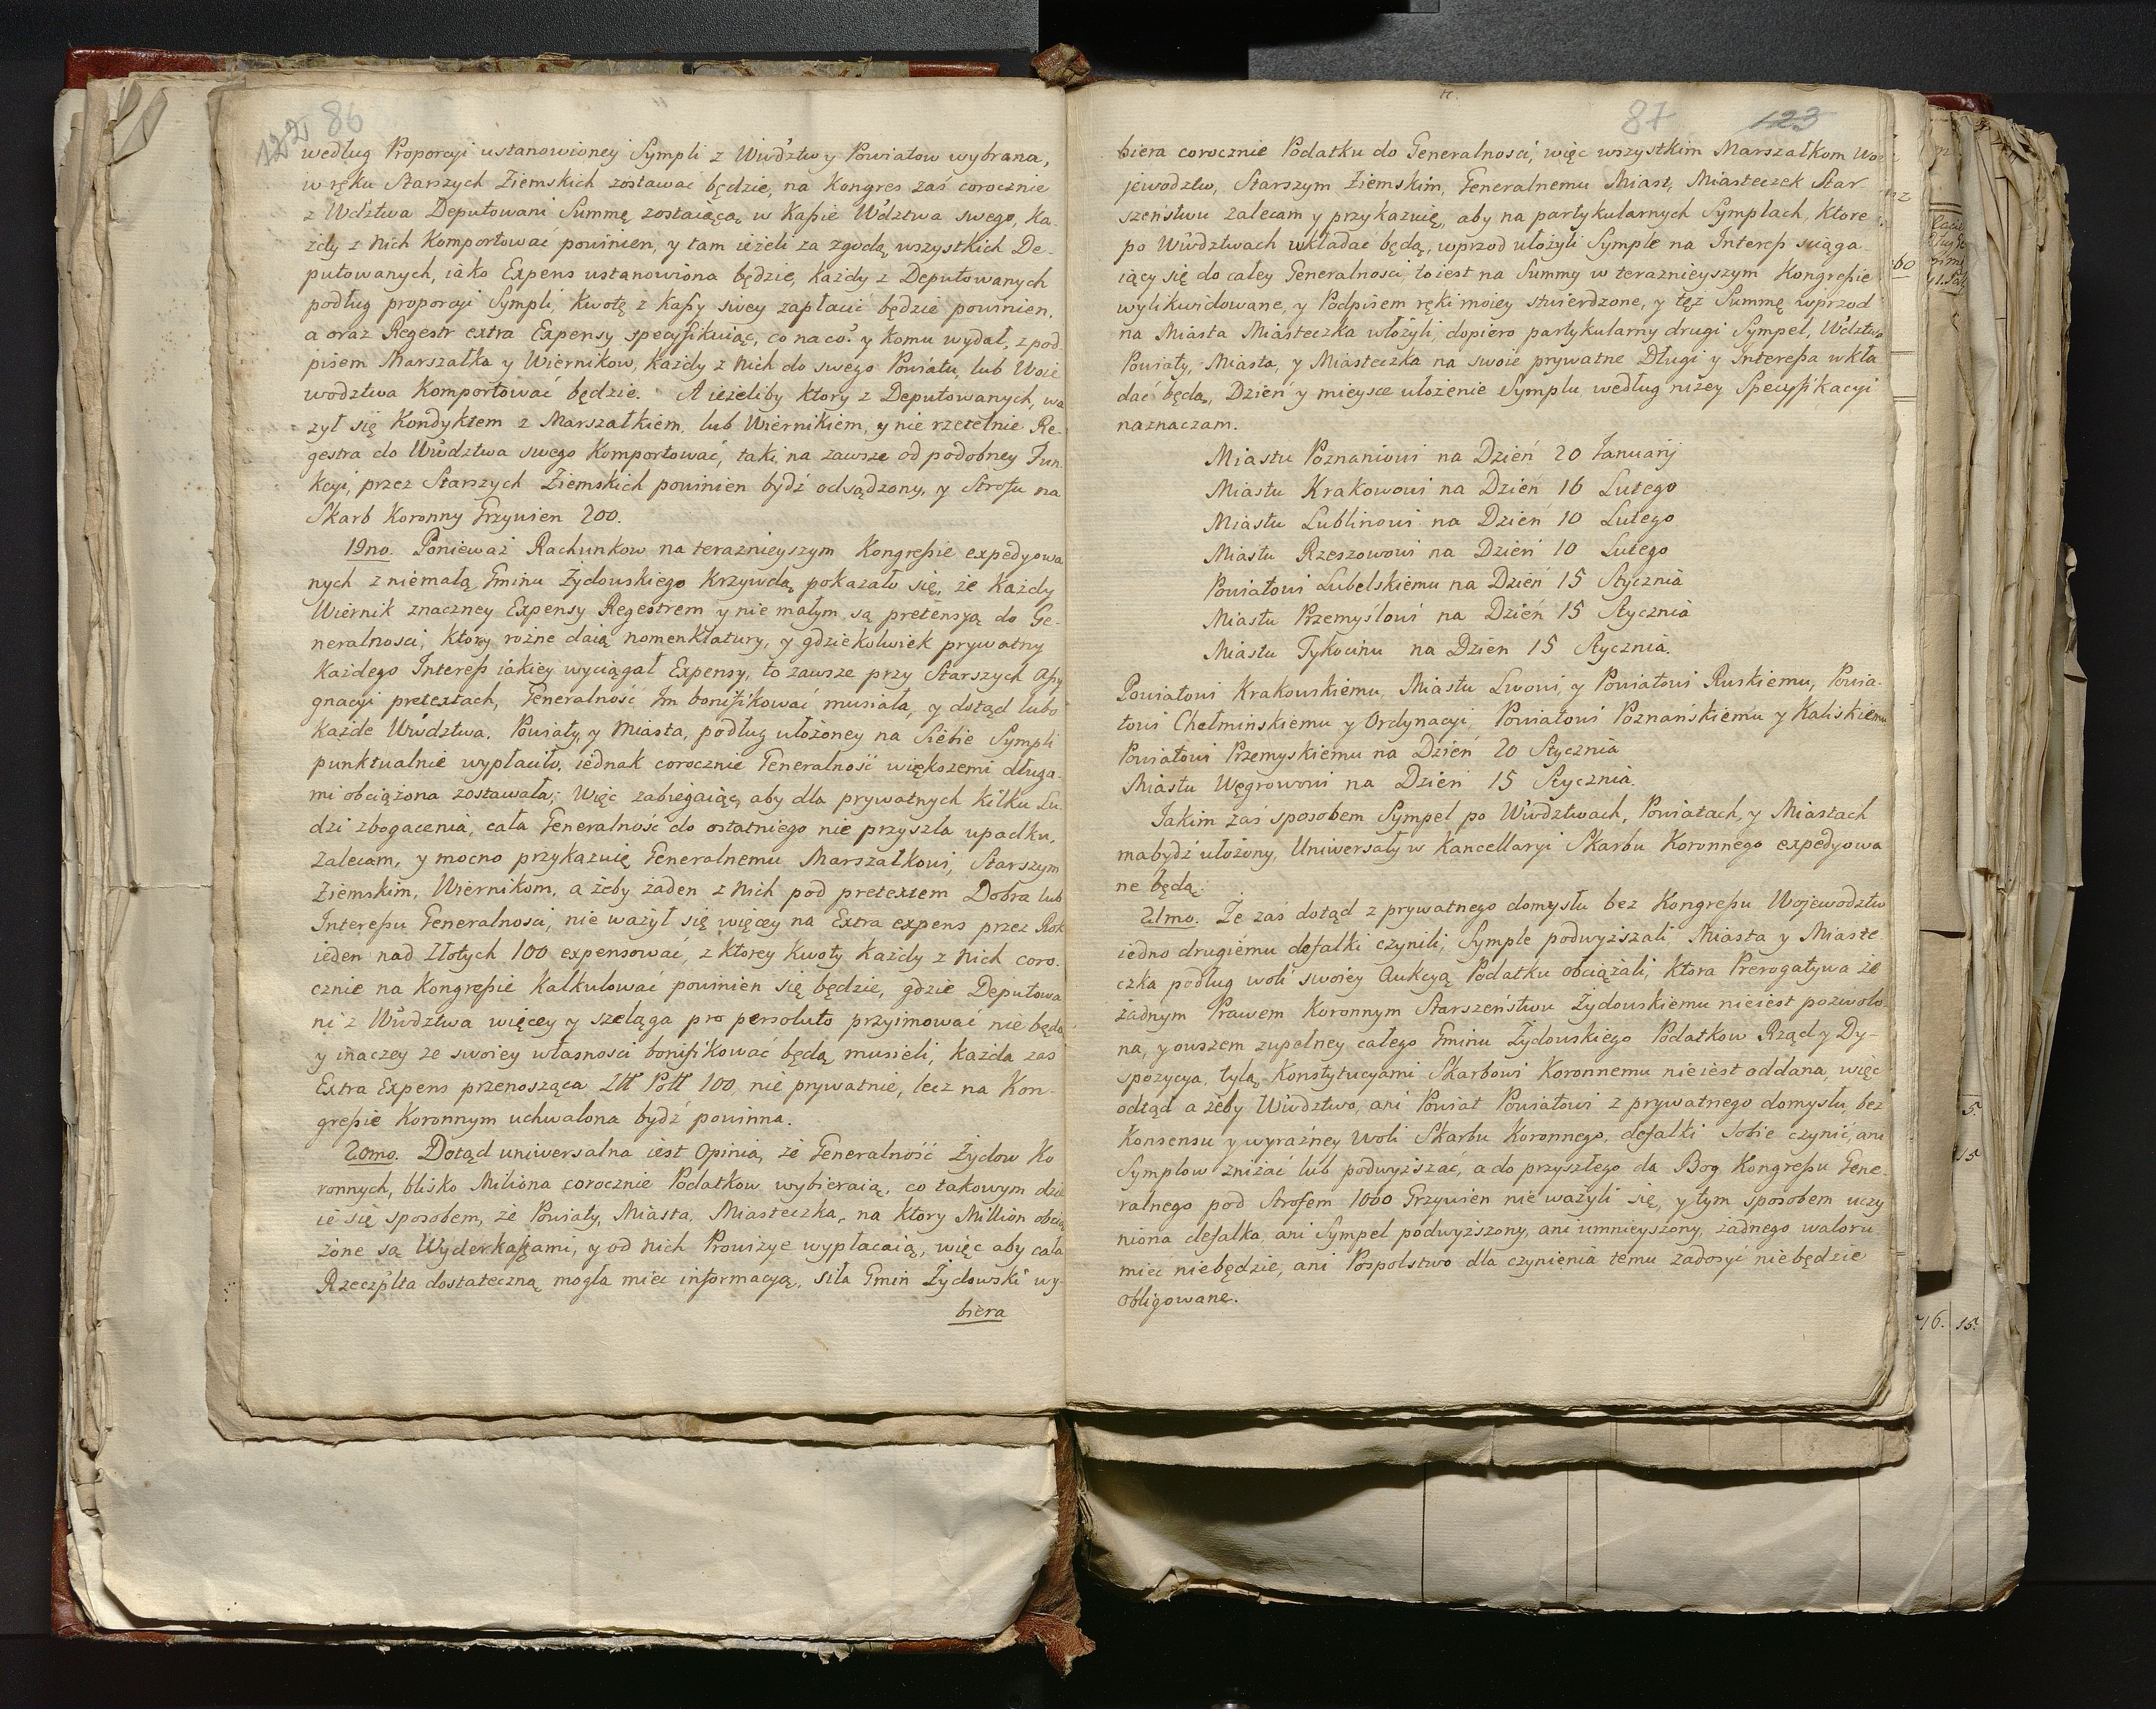 122 86
według Proporcyi ustanowioney Sympli z Wiwdztw y Powiatow wybrana,
w ręku Starszych Ziemskich zostawac będzie, na Kongres zaś corocznie
z Wdztwa Deputowani Summę zostaiącą w Kaßie Wdztwa swego, Ka-
żdy z nich Komportować powinien, y tam ieżeli za zgodą wszystkich De-
putowanych, iako Expens ustanowiona będzie, każdy z Deputowanych
podług proporcyi Sympli, Kwotę z kaßy swey zapłacić będzie powinien,
a oraz Regestr extra Expensy specyfikuiąc, co na co? y komu wydał, z pod
pisem Marszałka y Wiernikow, każdy z nich do swego Powiatu, lub Woie
wodztwa Komportować będzie. A ieżeliby ktory z Deputowanych, wa
żył się Kondyktem z Marszałkiem, lub Wiernikiem, y nie rzetelnie Re-
gestra do Wwdztwa swego Komportować, taki na zawsze od podobney Fun-
kcyi, przez Starszych Ziemskich powinien bydź odsądzony, y Strofu na
Skarb Koronny Grzywien 200.
19no. Ponieważ Rachunkow na teraznieyszym Kongreßie expedyowa
nych z niemałą Gminu Żydowskiego Krzywdą, pokazało się, że Każdy
Wiernik znaczney Expensy Regestrem y nie małym są pretensyą do Ge-
neralnosci, ktory rożne daią nomenklatury, y gdziekolwiek prywatny
Każdego Interess iakiey wyciągał Expensy, to zawsze przy Starszych Aßy
gnacyi pretextach, Generalność Im bonifikować musiała, y dotąd lubo
każde Wwdztwa, Powiaty, y Miasta, podług ułożoney na Siebie Sympli
punktualnie wypłaciło, iednak corocznie Generalność większemi długa-
mi obciążona zostawała; Więc zabiegaiąc, aby dla prywatnych kilku Lu-
dzi zbogacenia, cała Generalność do ostatniego nie przyszła upadku,
Zalecam, y mocno przykazuię Generalnemu Marszałkowi, Starszym
Ziemskim, Wiernikom, a żeby żaden z nich pod pretextem Dobra lub
Intereßu Generalnosci, nie ważył się więcey na Extra expens przez Rok
ieden nad Złotych 100 expensować, z ktorey Kwoty każdy z nich coro-
cznie na Kongreßie Kalkulować powinien się będzie, gdzie Deputowa
ni z Wwdztwa więcey y szeląga pro persoluto przyimować nie będą
y inaczey ze swoiey własnosci bonifikować będą musieli, każda zas
Extra Expens przenosząca Złł Poll 100, nie prywatnie, lecz na Kon-
greßie Koronnym uchwalona bydź powinna.
20mo. Dotąd uniwersalna iest Opinia, że Generalność Żydow Ko
ronnych, blisko Miliona corocznie Podatkow wybieraią, co takowym dzie
ie się sposobem, że Powiaty, Miasta, Miasteczka, na ktory Million obcią
żone są Wyderkaßami, y od nich Prowizye wypłacaią, więc aby cała
Rzeczplta dostateczną mogła mieć informacyą, siła Gmin Żydowski wy-
biera
87 123
biera corocznie Podatku do Generalnosci, więc wszystkim Marszałkom Woi
jewodztw, Starszym Ziemskim, Generalnemu Miast, Miasteczek Star
szeństwu zalecam y przykazuię, aby na partykularnych Symplach, ktore
po Wwdztwach wkładać będą, wprzod ułożyli Symple na Interess sciąga
iący się do całey Generalnosci, to iest na Summy w teraznieyszym Kongreßie
wylikwidowane, y Podpisem ręki moiey stwierdzone, y tęż Summę wprzod
na Miasta Miasteczka włożyli, dopiero partykularny drugi Sympel, Wdztwa
Powiaty, Miasta, y Miasteczka na swoie prywatne Długi y Intereßa wkła
dać będą, Dzień y mieysce ułożenie Symplu według niżey Specyfikacyi
naznaczam.
Miastu Poznaniowi na Dzień 20 Januarij
Miastu Krakowowi na Dzień 16 Lutego
Miastu Lublinowi na Dzień 10 Lutego
Miastu Rzeszowowi na Dzień 10 Lutego
Powiatowi Lubelskiemu na Dzień 15 Stycznia
Miastu Przemyślowi na Dzień 15 Stycznia
Miastu Tykocinu na Dzien 15 Stycznia.
Powiatowi Krakowskiemu, Miastu Lwowi, y Powiatowi Ruskiemu, Powia-
towi Chełmińskiemu y Ordynacyi, Powiatowi Poznańskiemu y Kaliskiemu
Powiatowi Przemyskiemu na Dzień 20 Stycznia
Miastu Węgrowowi na Dzień 15 Stycznia.
Jakim zaś sposobem Sympel po Wwdztwach, Powiatach, y Miastach
ma bydź ułożony, Uniwersały w Kancellaryi Skarbu Koronnego expedyowa
ne będą.
21mo. Że zaś dotąd z prywatnego domysłu bez Kongreßu Wojewodztw
iedno drugiemu defalki czynili, Symple podwyższali, Miasta y Miaste
czka podług woli swoiey Aukcyą Podatku obciążali, ktora Prerogatywa że
żadnym Prawem Koronnym Starszeństwu Żydowskiemu nie iest pozwolo
na, y owszem zupelney całego Gminu Żydowskiego Podatkow Rząd y Dy-
spozycya, tylą Konstytucyami Skarbowi Koronnemu nie iest oddana, więc
odtąd a żeby Wiwdztwo, ani Powiat Powiatowi z prywatnego domysłu, bez
Konsensu y wyraźney woli Skarbu Koronnego, defalki Sobie czynić, ani
Symplow zniżać lub podwyższać, a do przyszłego da Bog Kongreßu Gene-
ralnego pod Strofem 1000 Grzywien nie ważyli się, y tym sposobem uczy
niona defalka, ani Sympel podwyższony, ani umnieyszony, żadnego waloru
mieć nie będzie, ani Pospolstwo dla czynienia temu zadosyć nie będzie
Obligowane.